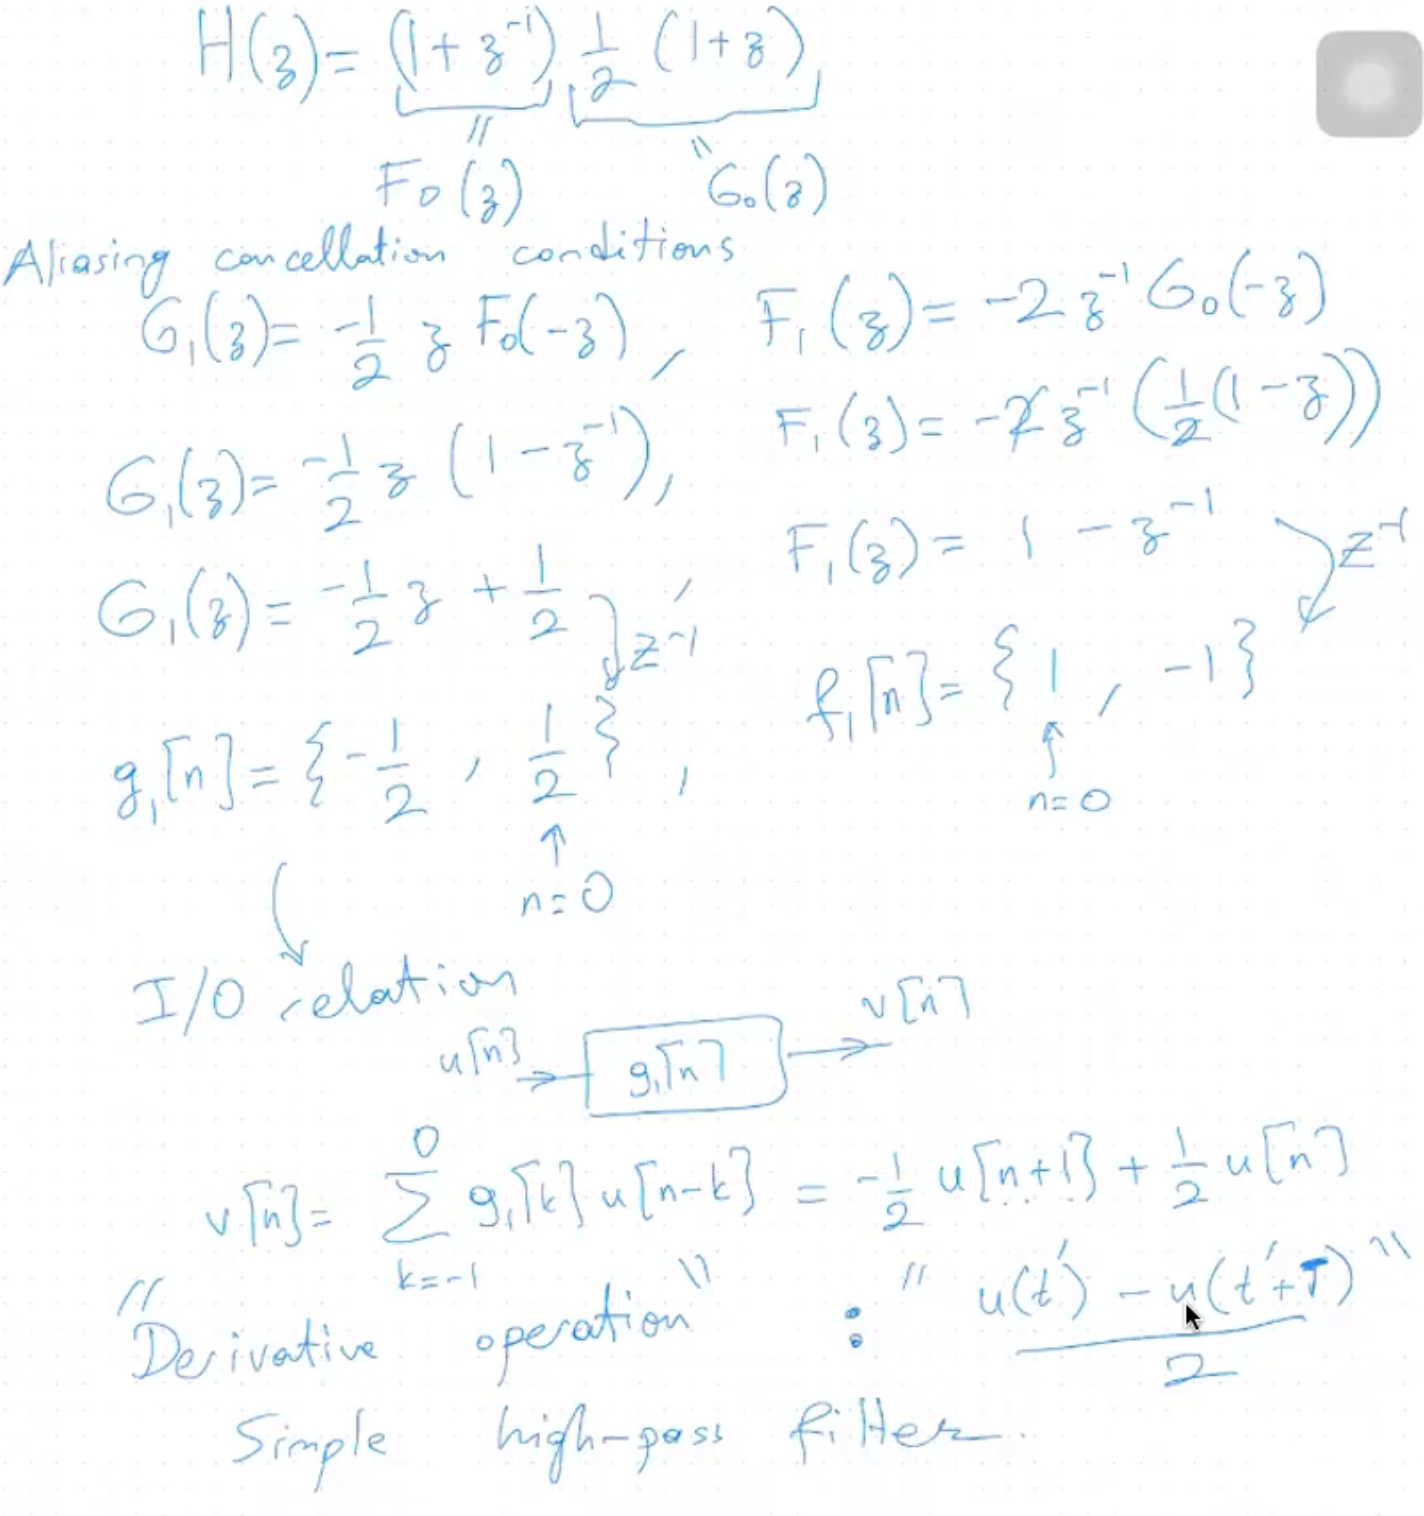 H(z) = (1 + z⁻¹) 1/2 (1+z)
" "
F₀(z) G₀(z)
Aliasing cancellation conditions
G₁(z) = -1/2 z F₀(-z) , F₁(z) = -2 z⁻¹ G₀(-z)
G₁(z) = -1/2 z (1 - z⁻¹) , F₁(z) = -2 z⁻¹ (1/2 (1 - z))
G₁(z) = -1/2 z + 1/2 , F₁(z) = 1 - z⁻¹
Z⁻¹ Z⁻¹
g₁[n] = {-1/2 , 1/2} , f₁[n] = {1 , -1}
↑ ↑
n=0 n=0
I/O relation
u[n] → g₁[n] → v[n]
v[n] = ∑_{k=-1}^{0} g₁[k] u[n-k] = -1/2 u[n+1] + 1/2 u[n]
"Derivative operation" : "(u(t') - u(t'+T))/2"
Simple high-pass filter.